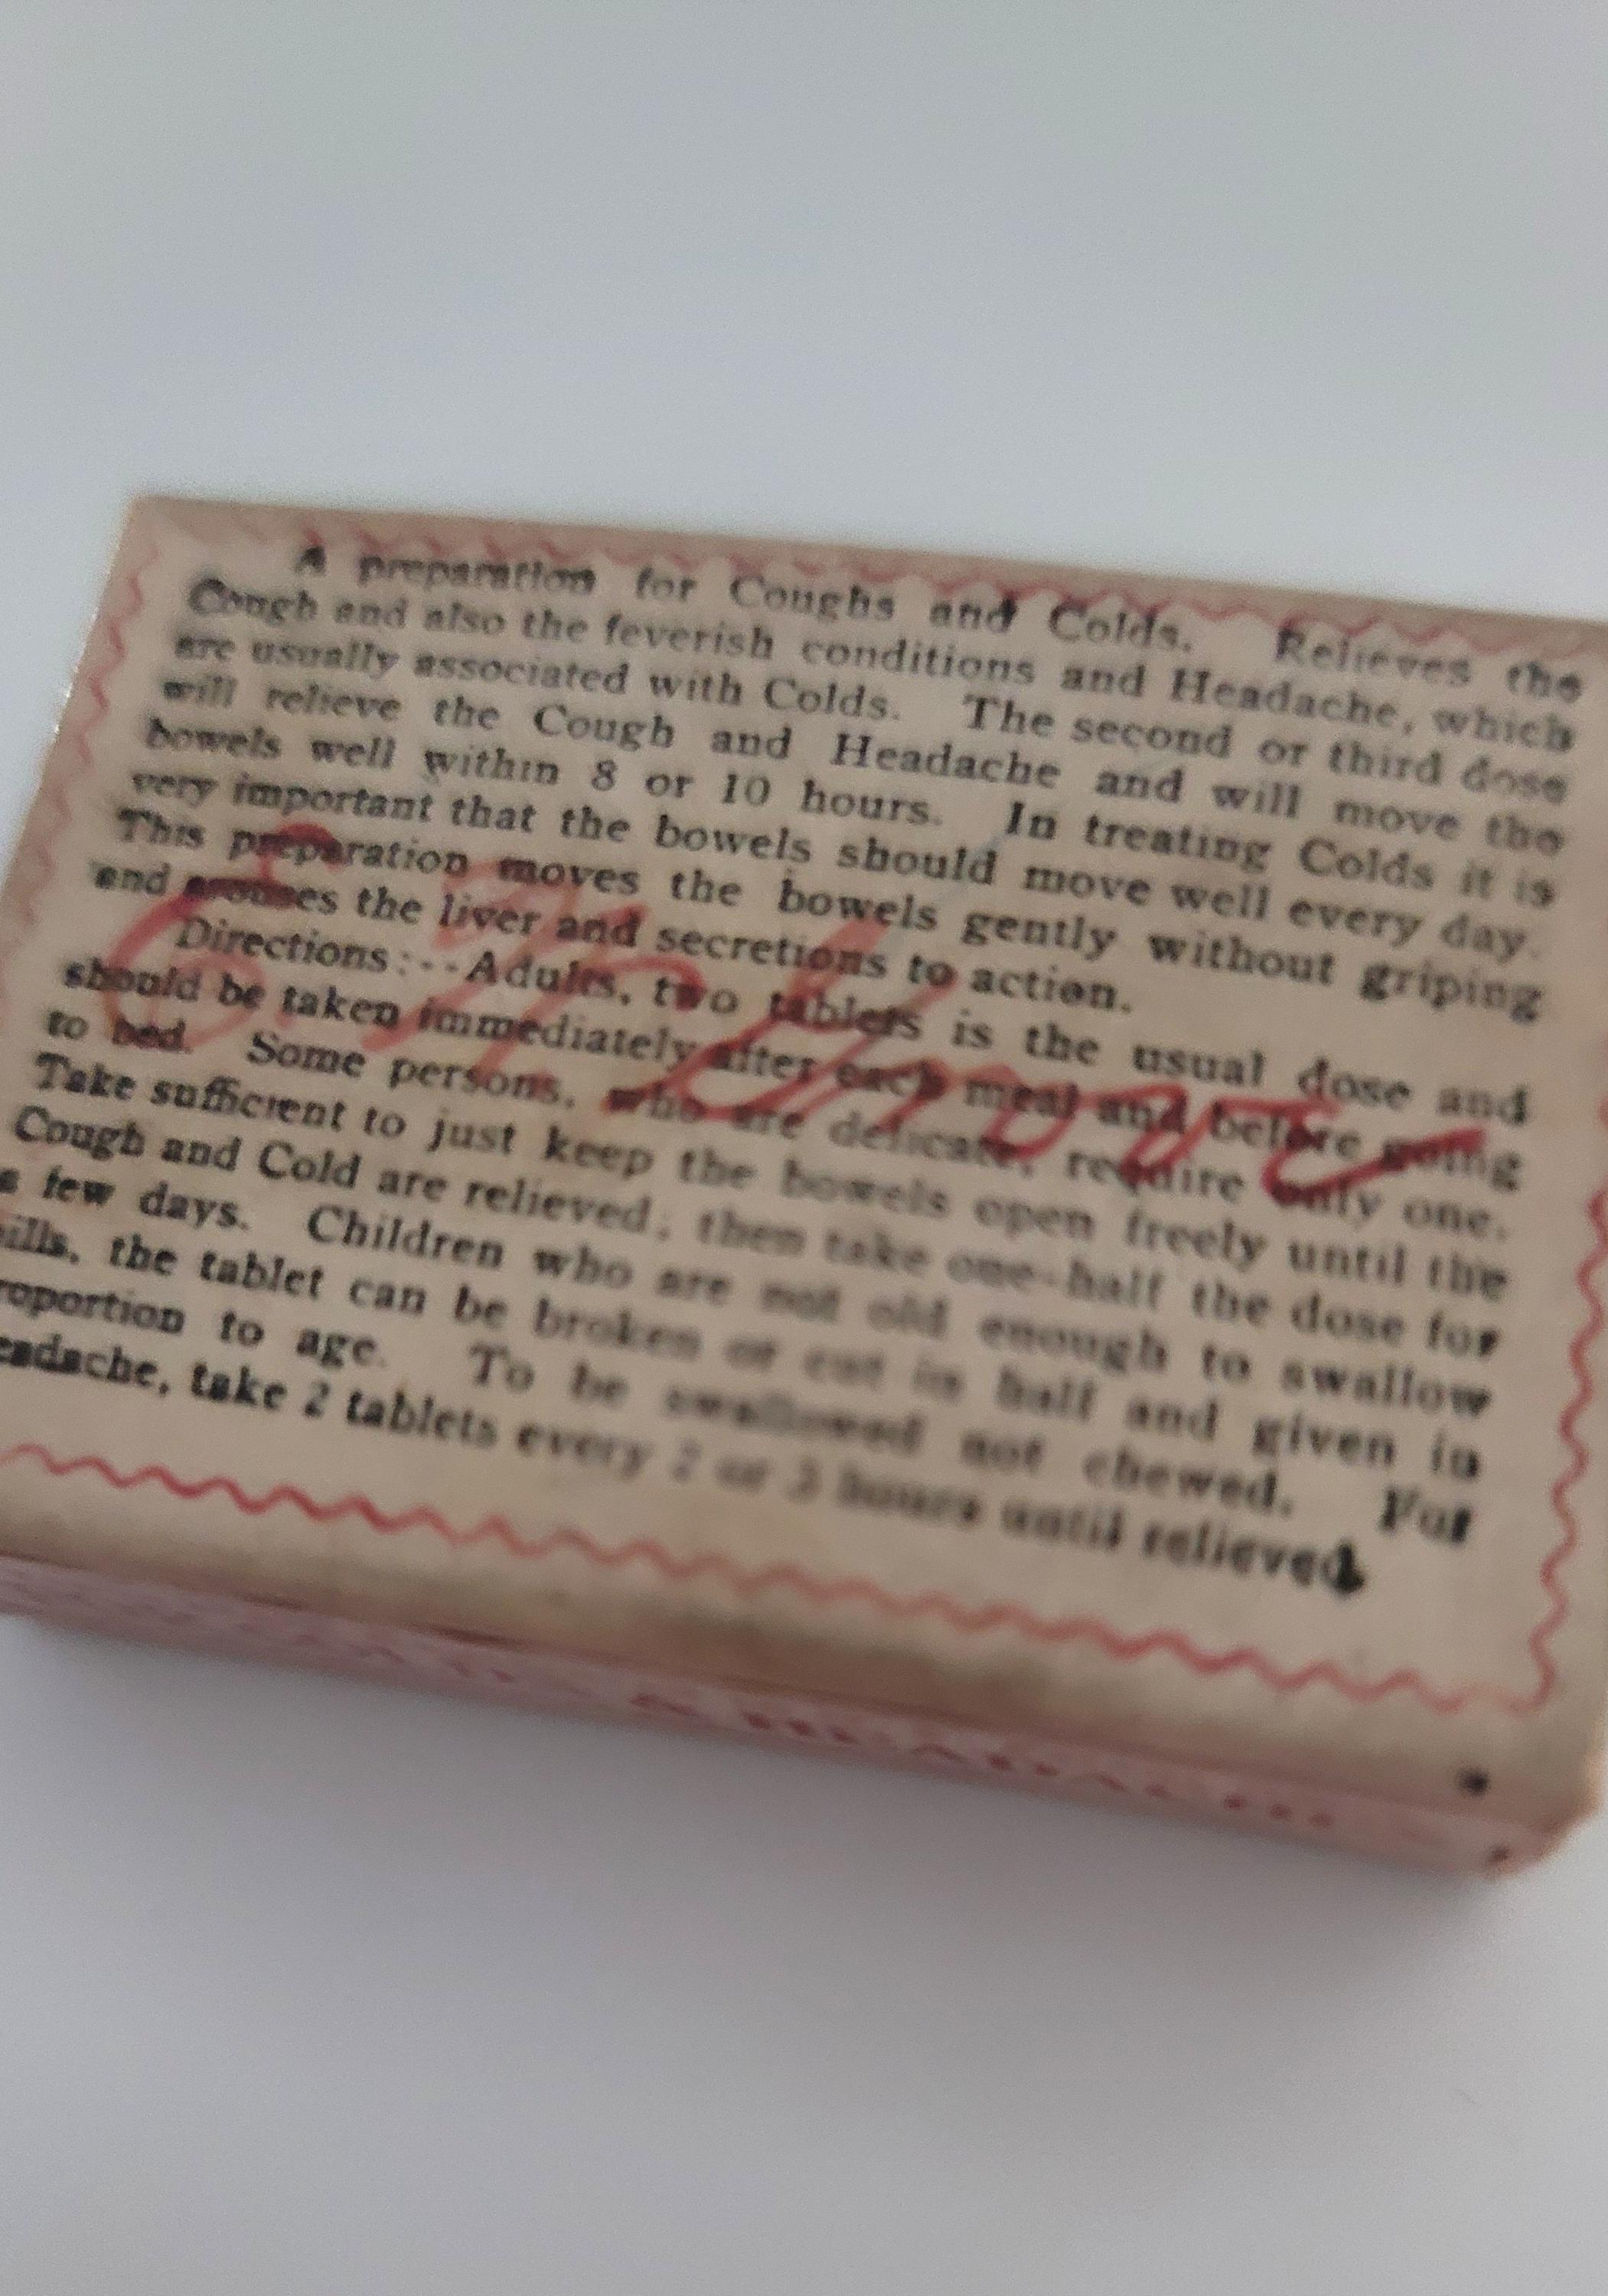 A preparation for Coughs and Colds. Relieves the
Cough and also the feverish conditions and Headache, which
are usually associated with Colds. The second or third dose
will relieve the Cough and Headache and will move the
bowels well within 8 or 10 hours. In treating Colds it is
very important that the bowels should move well every day.
This preparation moves the bowels gently without griping
and arouses the liver and secretions to action.
Directions:--Adults, two tablets is the usual dose and
should be taken immediately after each meal and before going
to bed. Some persons, who are delicate, require only one.
Take sufficient to just keep the bowels open freely until the
Cough and Cold are relieved, then take one-half the dose for
a few days. Children who are not old enough to swallow
pills, the tablet can be broken or cut in half and given in
roportion to age. To be swallowed not chewed. For
eadache, take 2 tablets every 2 or 3 hours until relieved.
E. W. Grove